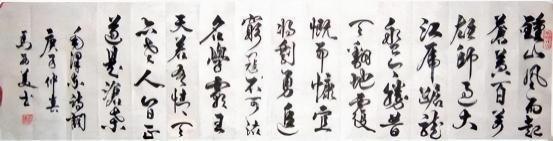 鍾山风雨起
蒼黄百萬
雄師過大
江虎踞龍
盤今勝昔
天翻地覆
慨而慷宜
將剩勇追
窮寇不可沽
名學霸王
天若有情天
亦老人間正
道是滄桑
毛澤東詩詞
庚子仲春
馬書